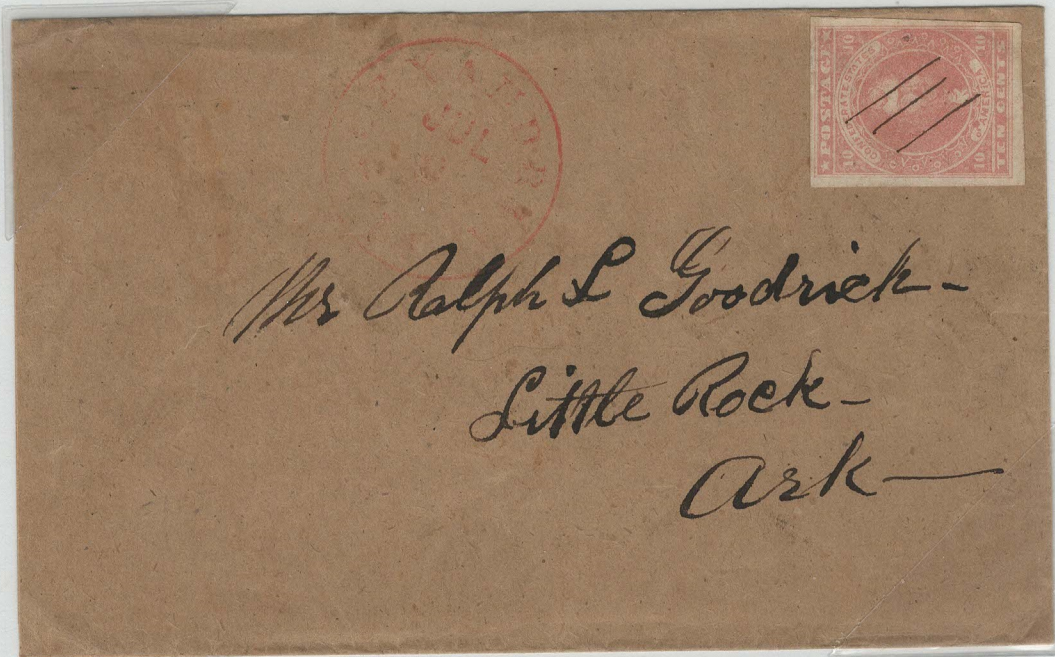 JUL
POSTAGE
10 10
CONFEDERATE STATES
OF AMERICA
10 10
TEN CENTS
Mr Ralph L Goodrick-
Little Rock-
Ark-